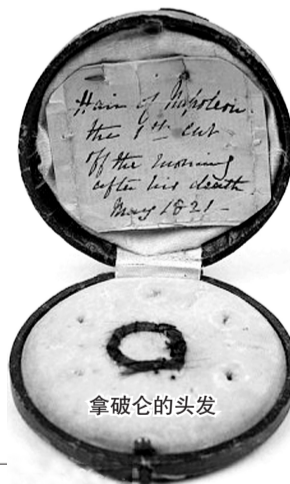 Hair of Napoleon
the 1st cut
off the morning
after his death
May 1821 —
拿破仑的头发